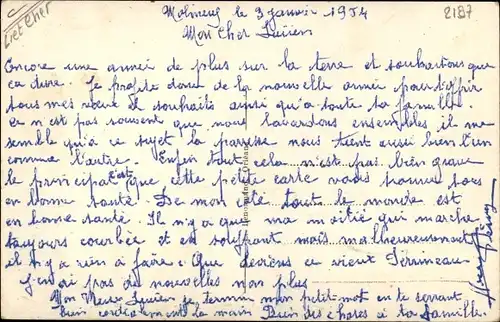 Loir et Cher
le 3 janvier 1954
2187
Mon Cher Lucien
Encore une année de plus sur la terre et souhaitons que
ça dure. Je profite donc de la nouvelle année pour t'offrir
tous mes vœux et souhaits ainsi qu'à toute ta famille.
Ce n'est pas souvent que nous bavardons ensembles il me
semble qu'à ce sujet la paresse nous tient aussi bien l'un
comme l'autre. Enfin tout cela n'est pas bien grave
le principal c'est que cette petite carte vous trouve tous
en bonne santé. De mon côté tout le monde est
en bonne santé. Il n'y a que ma moitié qui marche
toujours courbée et en souffrant mais malheureusement
il n'y a rien à faire. Que deviens ce vieux Perrineau
j'en ai pas de nouvelles non plus
Mon vieux Lucien je termine mon petit mot en te serrant
bien cordialement la main Bien des choses à ta famille.